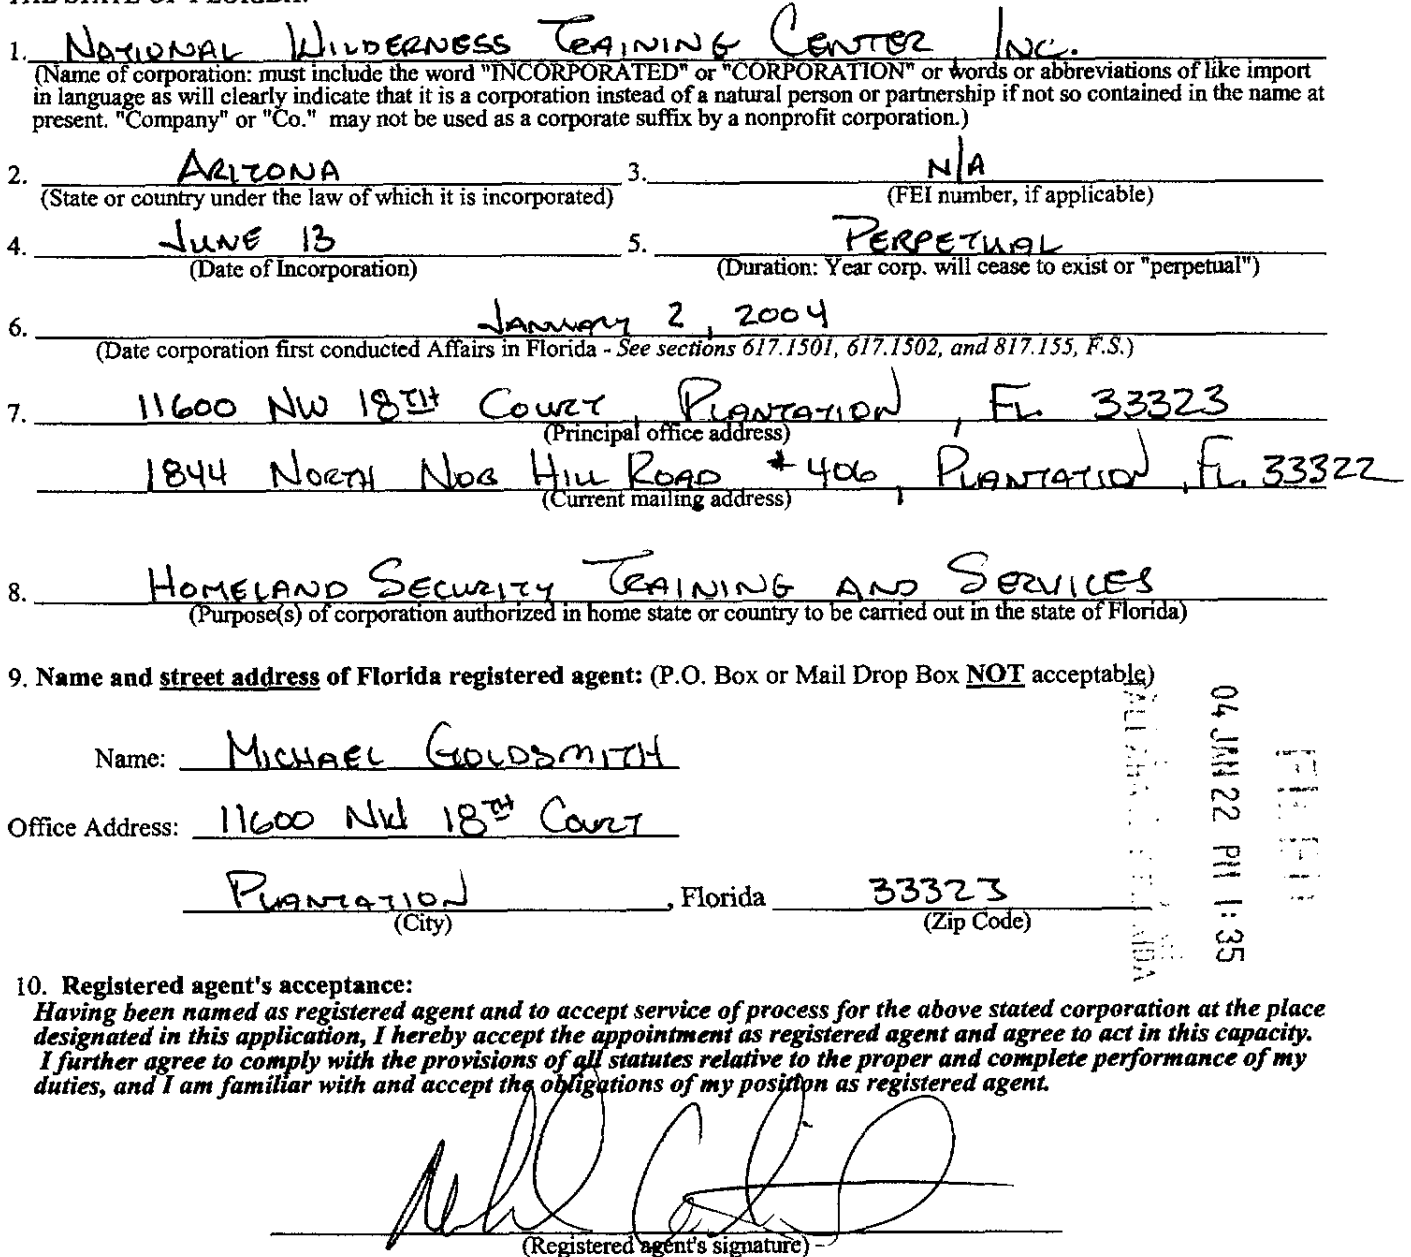 THE STATE OF FLORIDA:
1. NATIONAL WILDERNESS TRAINING CENTER INC.
(Name of corporation: must include the word "INCORPORATED" or "CORPORATION" or words or abbreviations of like import
in language as will clearly indicate that it is a corporation instead of a natural person or partnership if not so contained in the name at
present. "Company" or "Co." may not be used as a corporate suffix by a nonprofit corporation.)
2. ARIZONA 3. N/A
(State or country under the law of which it is incorporated) (FEI number, if applicable)
4. JUNE 13 5. PERPETUAL
(Date of Incorporation) (Duration: Year corp. will cease to exist or "perpetual")
6. JANUARY 2, 2004
(Date corporation first conducted Affairs in Florida - See sections 617.1501, 617.1502, and 817.155, F.S.)
7. 11600 NW 18TH COURT, PLANTATION, FL. 33323
(Principal office address)
1844 NORTH NOB HILL ROAD #406, PLANTATION, FL. 33322
(Current mailing address)
8. HOMELAND SECURITY TRAINING AND SERVICES
(Purpose(s) of corporation authorized in home state or country to be carried out in the state of Florida)
9. Name and street address of Florida registered agent: (P.O. Box or Mail Drop Box NOT acceptable)
Name: MICHAEL GOLDSMITH
Office Address: 11600 NW 18TH COURT
PLANTATION, Florida 33323
(City) (Zip Code)
04 JAN 22 PM 1:35
10. Registered agent's acceptance:
Having been named as registered agent and to accept service of process for the above stated corporation at the place
designated in this application, I hereby accept the appointment as registered agent and agree to act in this capacity.
I further agree to comply with the provisions of all statutes relative to the proper and complete performance of my
duties, and I am familiar with and accept the obligations of my position as registered agent.
(Registered agent's signature)